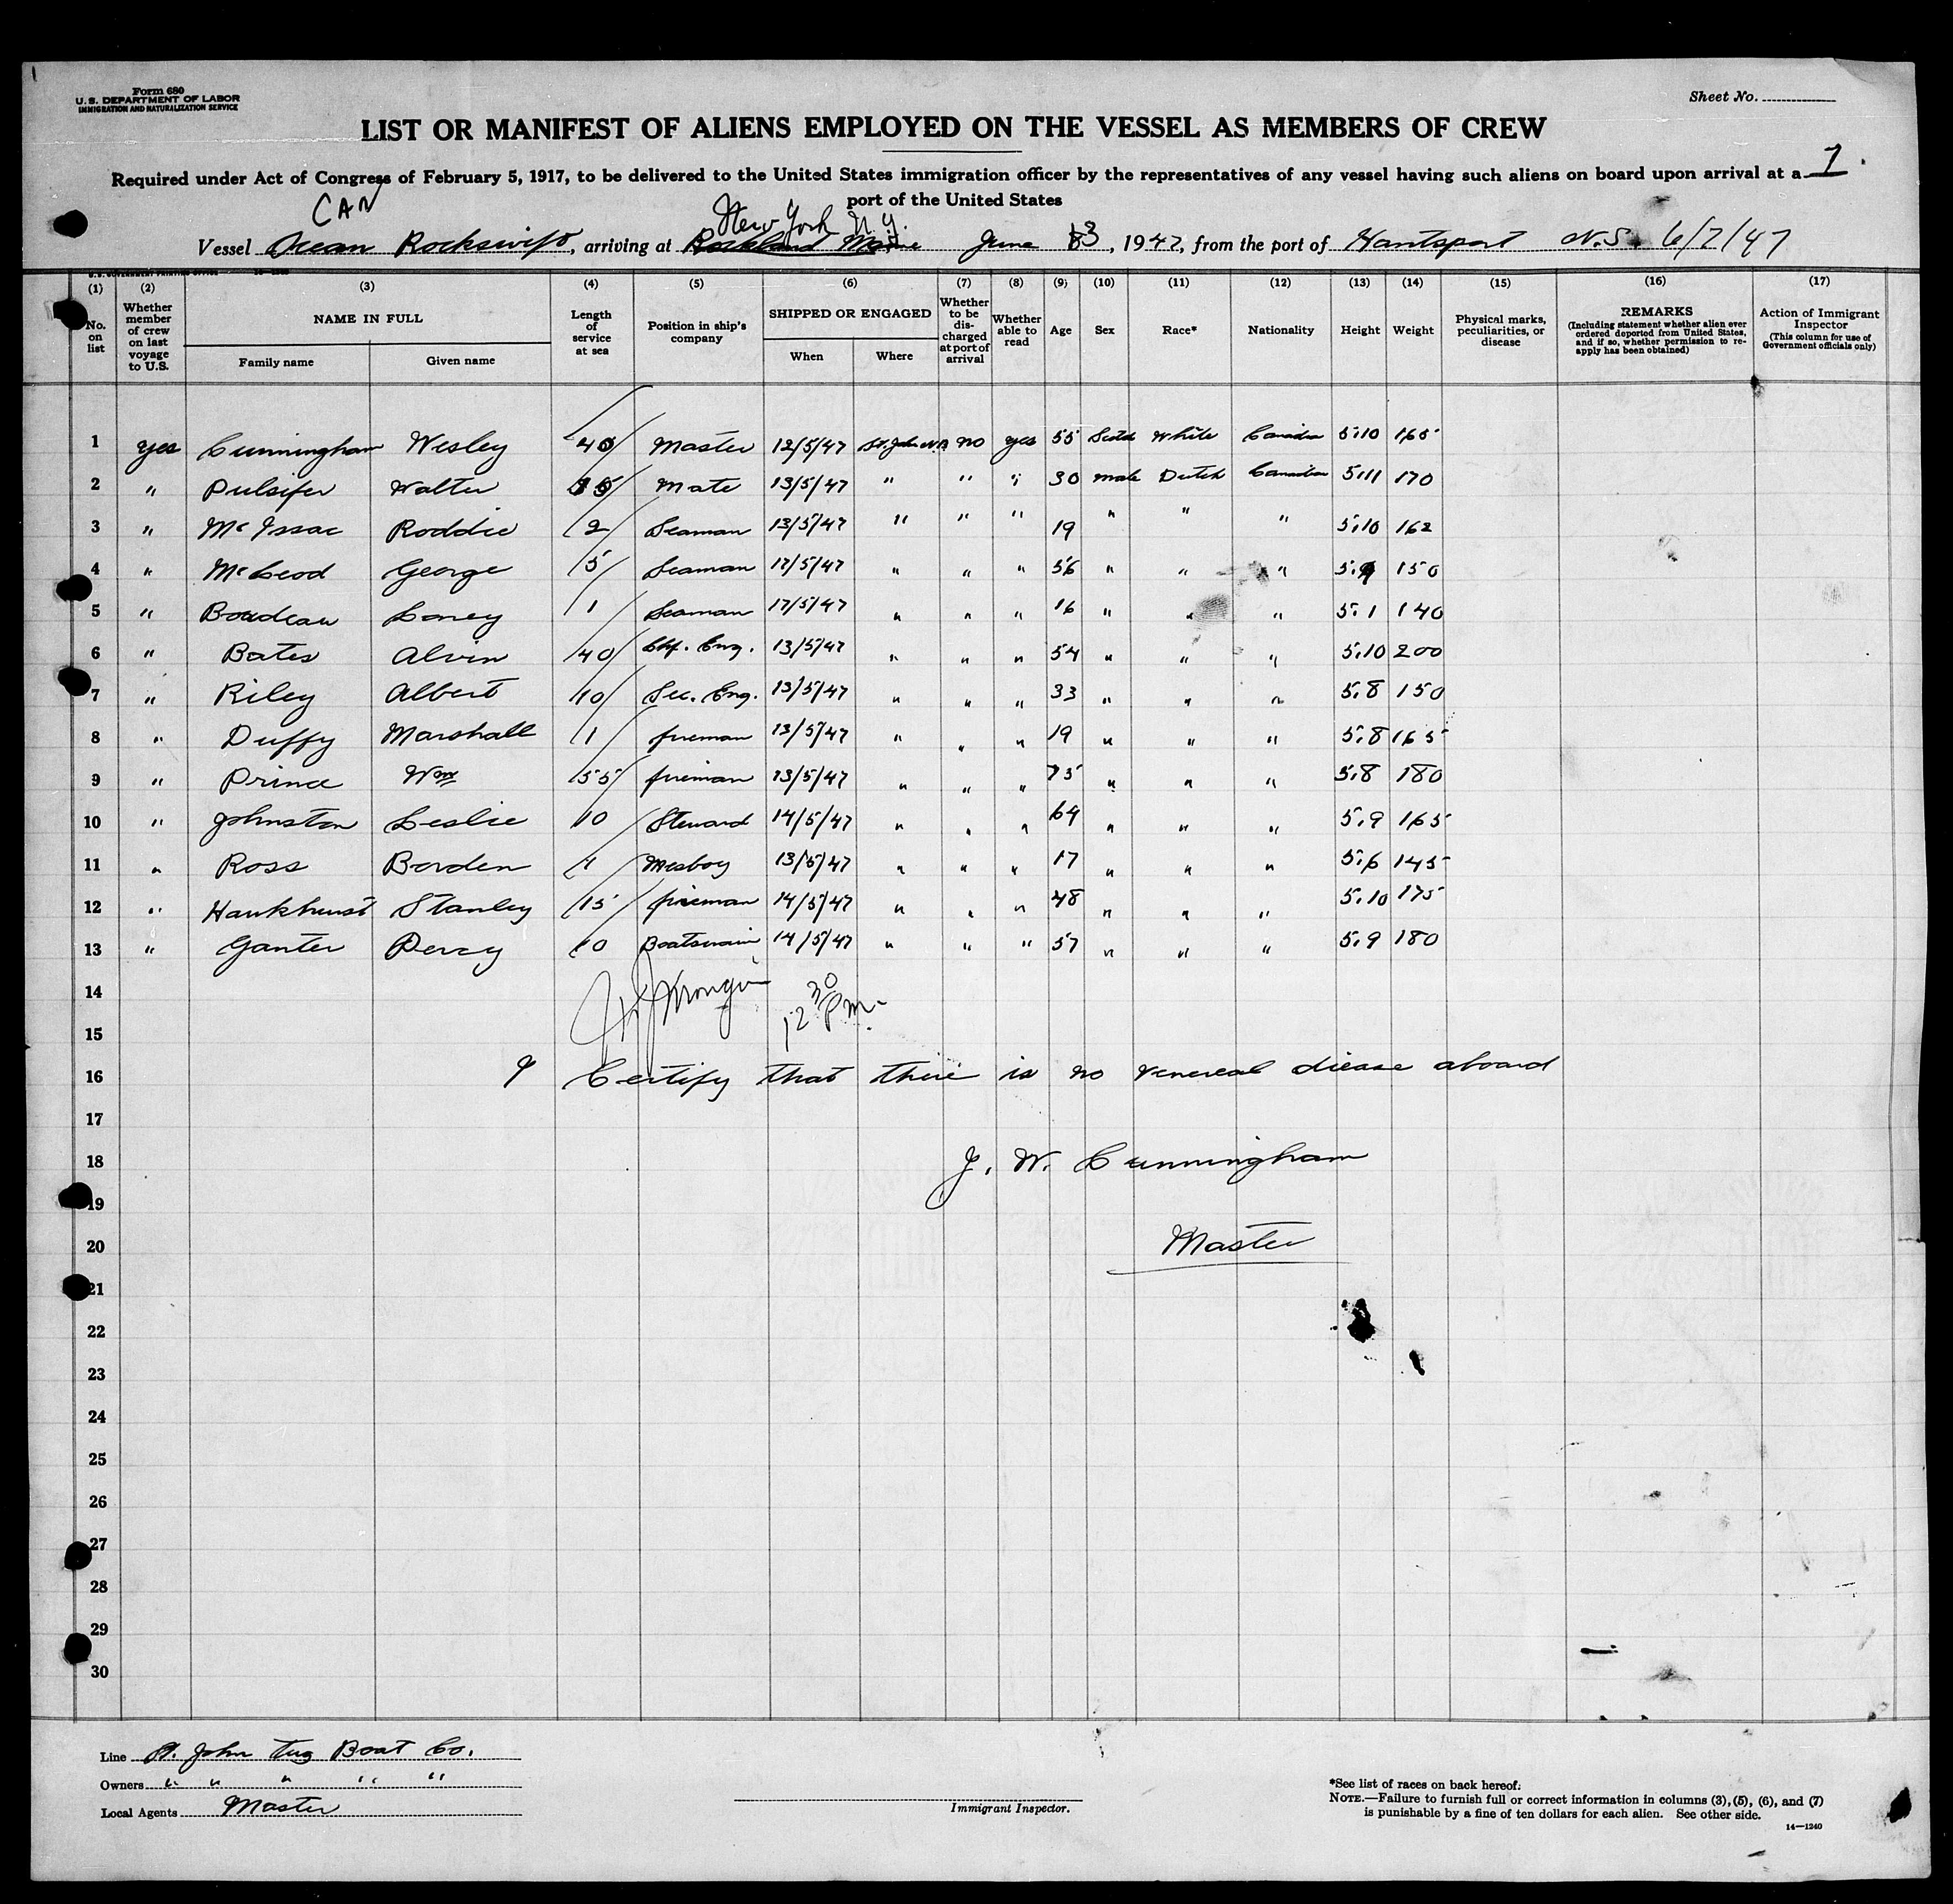 Form 680
U. S. DEPARTMENT OF LABOR
IMMIGRATION AND NATURALIZATION SERVICE
Sheet No.
LIST OR MANIFEST OF ALIENS EMPLOYED ON THE VESSEL AS MEMBERS OF CREW
Required under Act of Congress of February 5, 1917, to be delivered to the United States immigration officer by the representatives of any vessel having such aliens on board upon arrival at a 1
port of the United States
CAN
New York N.Y.
Vessel Ocean Rockswift, arriving at Rockland Maine June 3, 1947, from the port of Hantsport N.S. 6/7/47
U. S. GOVERNMENT PRINTING OFFICE
(1) (2) (3) (4) (5) (6) (7) (8) (9) (10) (11) (12) (13) (14) (15) (16) (17)
No. on list
Whether member of crew on last voyage to U.S.
NAME IN FULL
Family name Given name
Length of service at sea
Position in ship's company
SHIPPED OR ENGAGED
When Where
Whether to be discharged at port of arrival
Whether able to read
Age Sex Race* Nationality Height Weight
Physical marks, peculiarities, or disease
REMARKS
(Including statement whether alien ever ordered deported from United States, and if so, whether permission to reapply has been obtained)
Action of Immigrant Inspector
(This column for use of Government officials only)
1 yes Cunningham Wesley 40 Master 12/5/47 St. John N.B no yes 55 Scotch White Canadian 5.10 165
2 " Pulsifer Walter 15 Mate 13/5/47 " " " 30 male Dutch Canadian 5.11 170
3 " McIssac Roddie 2 Seaman 13/5/47 " " " 19 " " " 5.10 162
4 " McLeod George 5 Seaman 17/5/47 " " " 56 " " " 5.9 150
5 " Boudeau Loney 1 Seaman 17/5/47 " " " 16 " " " 5.1 140
6 " Bates Alvin 40 Chf. Eng. 13/5/47 " " " 54 " " " 5.10 200
7 " Riley Albert 10 Sec. Eng. 13/5/47 " " " 33 " " " 5.8 150
8 " Duffy Marshall 1 fireman 13/5/47 " " " 19 " " " 5.8 165
9 " Prince Wm 55 fireman 13/5/47 " " " 75 " " " 5.8 180
10 " Johnston Leslie 10 Steward 14/5/47 " " " 64 " " " 5.9 165
11 " Ross Borden 1 Mesboy 13/5/47 " " " 17 " " " 5.6 145
12 " Hawkhurst Stanley 15 fireman 14/5/47 " " " 48 " " " 5.10 175
13 " Ganter Percy 10 Boatswain 14/5/47 " " " 57 " " " 5.9 180
14
12 30 P.M.
15
16 I Certify that there is no venereal diease aboard
17
18 J. W. Cunningham
19
20 Master
21
22
23
24
25
26
27
28
29
30
Line St. John Tug Boat Co.
Owners " " " " "
Local Agents Master
Immigrant Inspector.
*See list of races on back hereof.
NOTE.—Failure to furnish full or correct information in columns (3), (5), (6), and (7)
is punishable by a fine of ten dollars for each alien. See other side.
14—1240